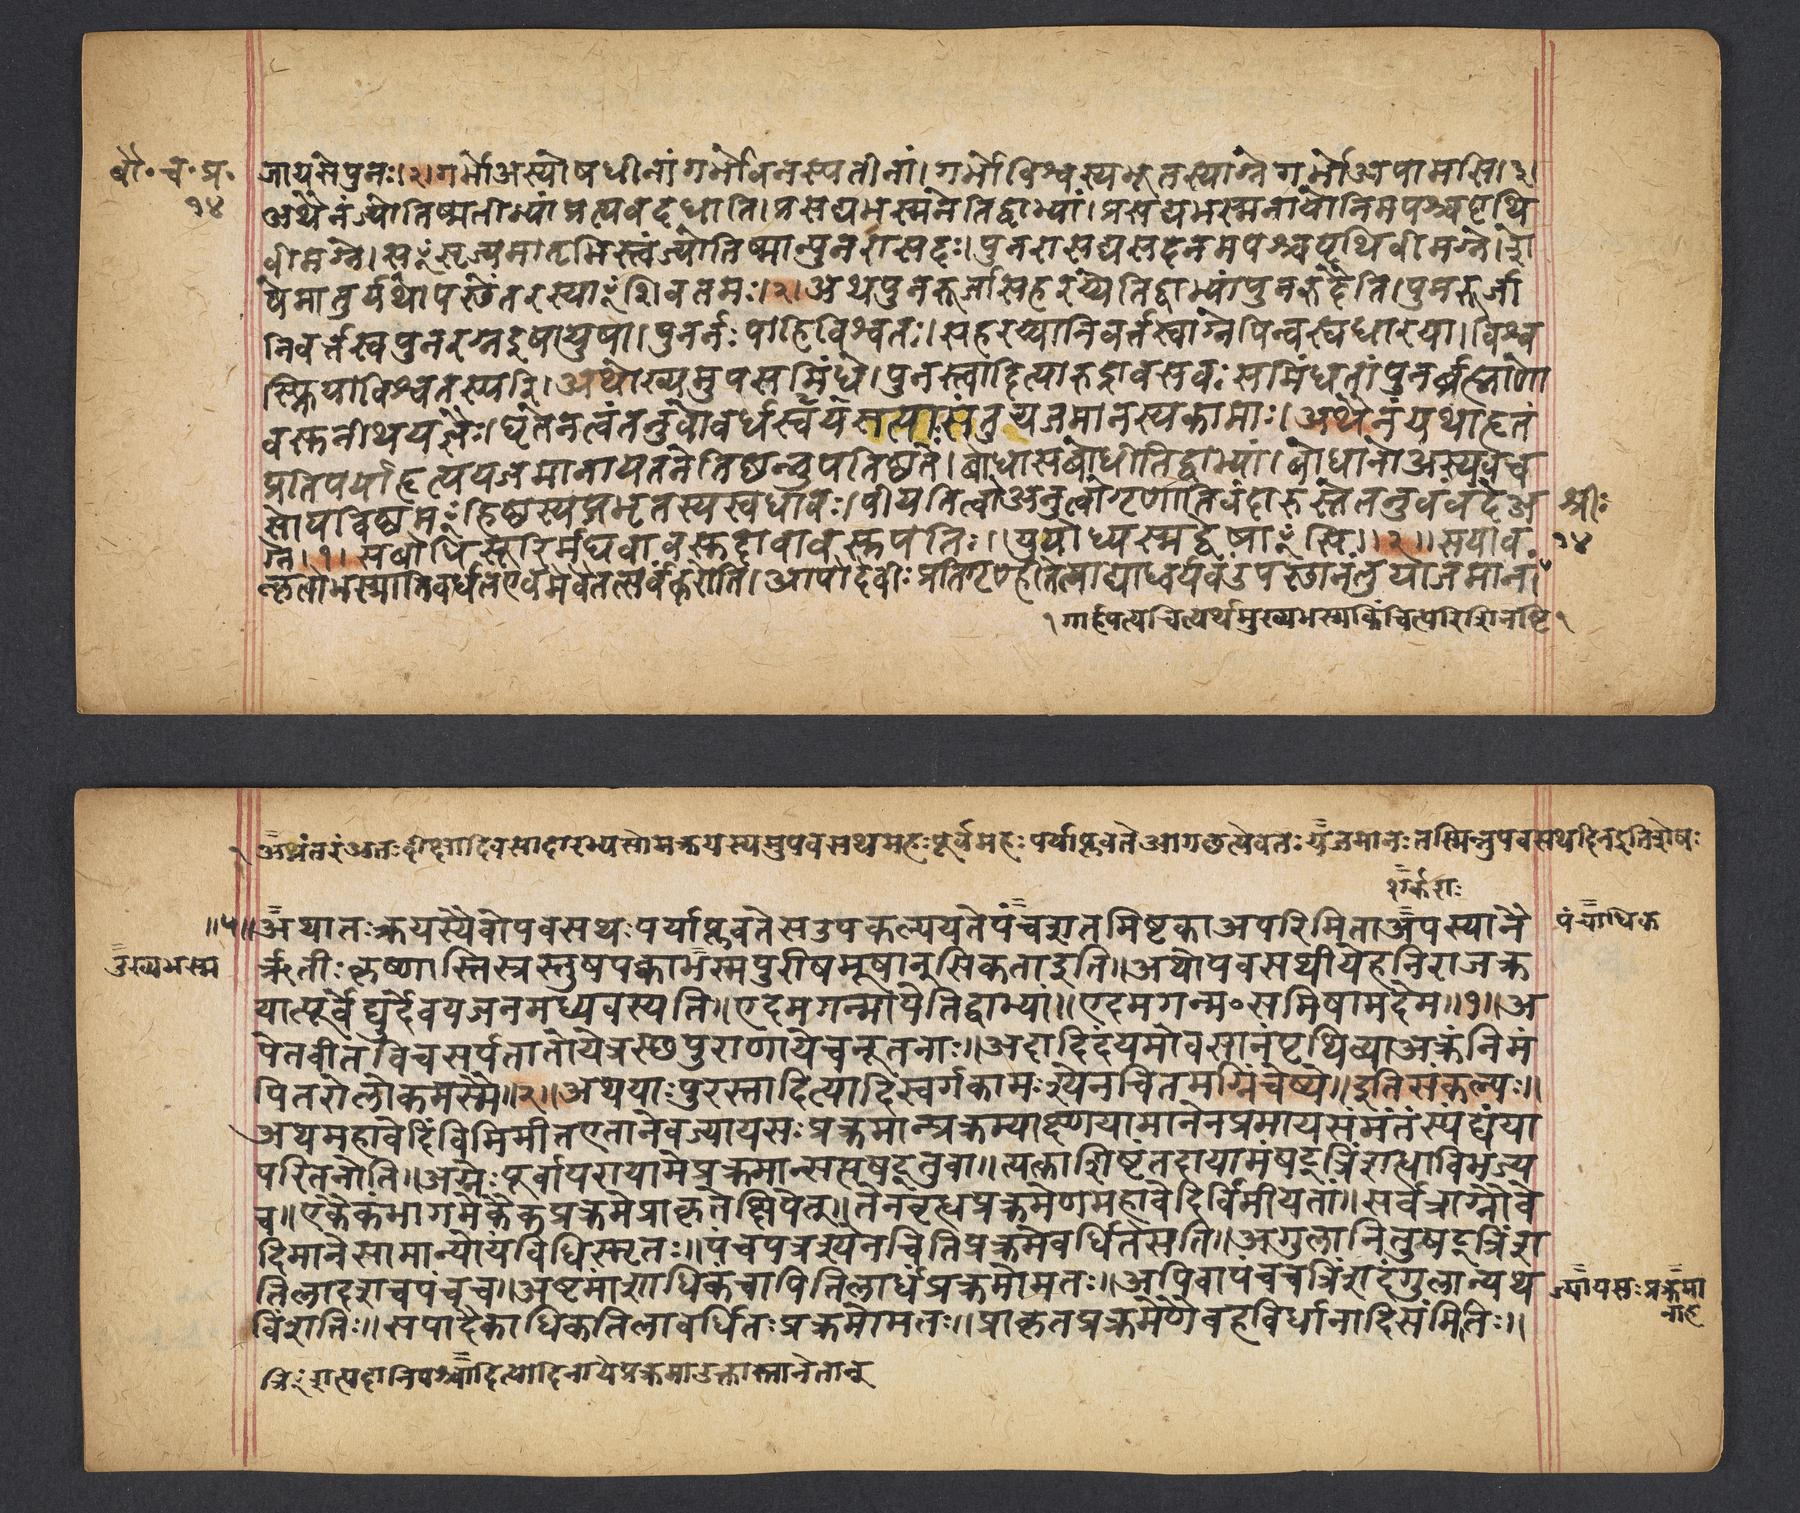 बौ॰ च॰ प्र॰
१४
जायसेपुनः।२।गर्भोअस्योषधीनांगर्भोवनस्पतीनां।गर्भोविश्वस्यभूतस्याग्नेगर्भोअपामसि।३।
अथैनंज्योतिष्मतीभ्यांप्रत्यवदधाति।प्रसद्यभस्मनेतिद्वाभ्यां।प्रसद्यभस्मनायोनिमपश्चपृथि
वीमग्ने।सꣳसृज्यमातृभिस्त्वंज्योतिष्मान्पुनरासदः।पुनरासद्यसदनमपश्चपृथिवीमग्ने।शे
षेमातुर्यथोपस्थेंतरस्याꣳशिवतमः।२।अथपुनरूर्जासहरय्येतिद्वाभ्यांपुनरुदैति।पुनरूर्जा
निवर्तस्वपुनरग्नइषायुषा।पुनर्नःपाहिविश्वतः।सहरय्यानिवर्तस्वाग्नेपिन्वस्वधारया।विश्व
प्स्नियाविश्वतस्परि।अथोख्यमुपसमिंधे।पुनस्त्वादित्यारुद्रावसवःसमिंधतांपुनर्ब्रह्माणो
वसुनीथयज्ञैः।घृतेनत्वंतनुवोवर्धस्वसत्याःसंतुयजमानस्यकामाः।अथैनंयथाहृतं
प्रतिपर्याहृत्ययजमानायतनेतिष्ठन्नुपतिष्ठते।बोधासबोधीतिद्वाभ्यां।बोधानोअस्यवच
सोयविष्ठमꣳहिष्ठस्यप्रभृतस्यस्वधावः।पीयतित्वोअनुत्वोगृणातिवंदारुस्तेतनुवंवंदेअ
श्रीः
ग्ने।१।सबोधिसूरिर्मघवावसुदावावसुपतिः।।युयोध्यस्मद्द्वेषाꣳसि।।२।।सयाव
१४
त्कृत्वोभस्मातिवर्धतएवमेवैतत्सर्वंकरोति।आपोदेवीःप्रतिगृण्हीतेत्याद्याध्वर्यवंउपस्थानंतुयाजमानं
१गार्हपत्यचित्यर्थमुख्यभस्मकिंचित्परिशिनष्टि१
अथंतरंअतःदीक्षादिवसादारभ्यसोमक्रयस्यमुपवसथमहःपूर्वमहःपर्याप्लवतेआगछत्येवेतःयजमानःतस्मिन्नुपवसथदिनइतिशेषः
शर्कराः
॥५॥अथातःक्रयस्यैवोपवसथःपर्याप्लवतेसउपकल्पयतेपंचशतमिष्टकाअपरिमिताअपस्यानै
पंचाधिक
उख्यभस्म
र्ऋतीःकृष्णास्तिस्रस्तुषपक्वाभस्मपुरीषमूषानुसिकताइति॥अथोपवसथीयेहनिराजक्र
यात्पूर्वेद्युर्देवयजनमध्यवस्यति॥एदमगन्मापेतिद्वाभ्यां॥एदमगन्म॰समिषामदेम॥१॥अ
पेतवीतविचसर्पतातोयेत्रस्छपुराणायेचनूतनाः॥अदादिदंयमोवसानंपृथिव्याअक्रंनिमं
पितरोलोकमस्मै॥२॥अथयाःपुरस्तादित्यादिस्वर्गकामःश्येनचितमग्निंचेष्ये॥इतिसंकल्पः॥
अथमहावेदिंविमिमीतएतानेवज्यायसःप्रक्रमान्प्रक्रम्याक्ष्णयामानेनप्रमायसंमंतंस्पंद्यंया
परितनोति॥अग्नेःपूर्वापरायामेप्रक्रमान्सत्सुषट्तुवा॥त्यक्ताशिष्टंतदायामंषट्त्रिंशत्धाविभज्य
च॥एकैकंभागमेकैकप्रक्रमेप्राकृतेक्षिपेत्॥तेनवृत्धप्रक्रमेणमहावेदिर्विमीयतां॥सर्वत्राग्नौवे
दिमानेसामान्योयंविधिस्मृतः॥पंचपत्रश्येनचितिप्रक्रमेवर्धितेसति॥अंगुलानितुषट्त्रिंश
तिलादशचपंचच॥अष्टमांशाधिकंचापितिलार्धंप्रक्रमोमतः॥अपिवापंचचत्रिंशदंगुलान्यथ
ज्यायसःप्रक्रमा
नाह
विंशतिः॥सपादैकाधिकतिलावर्धितःप्रक्रमोमतः॥प्राकृतप्रक्रमेणैवहविर्धानादिसंमितिः॥
त्रिꣳशत्पदानिपश्चादित्यादिनायेप्रक्रमाउक्तास्तानेतान्